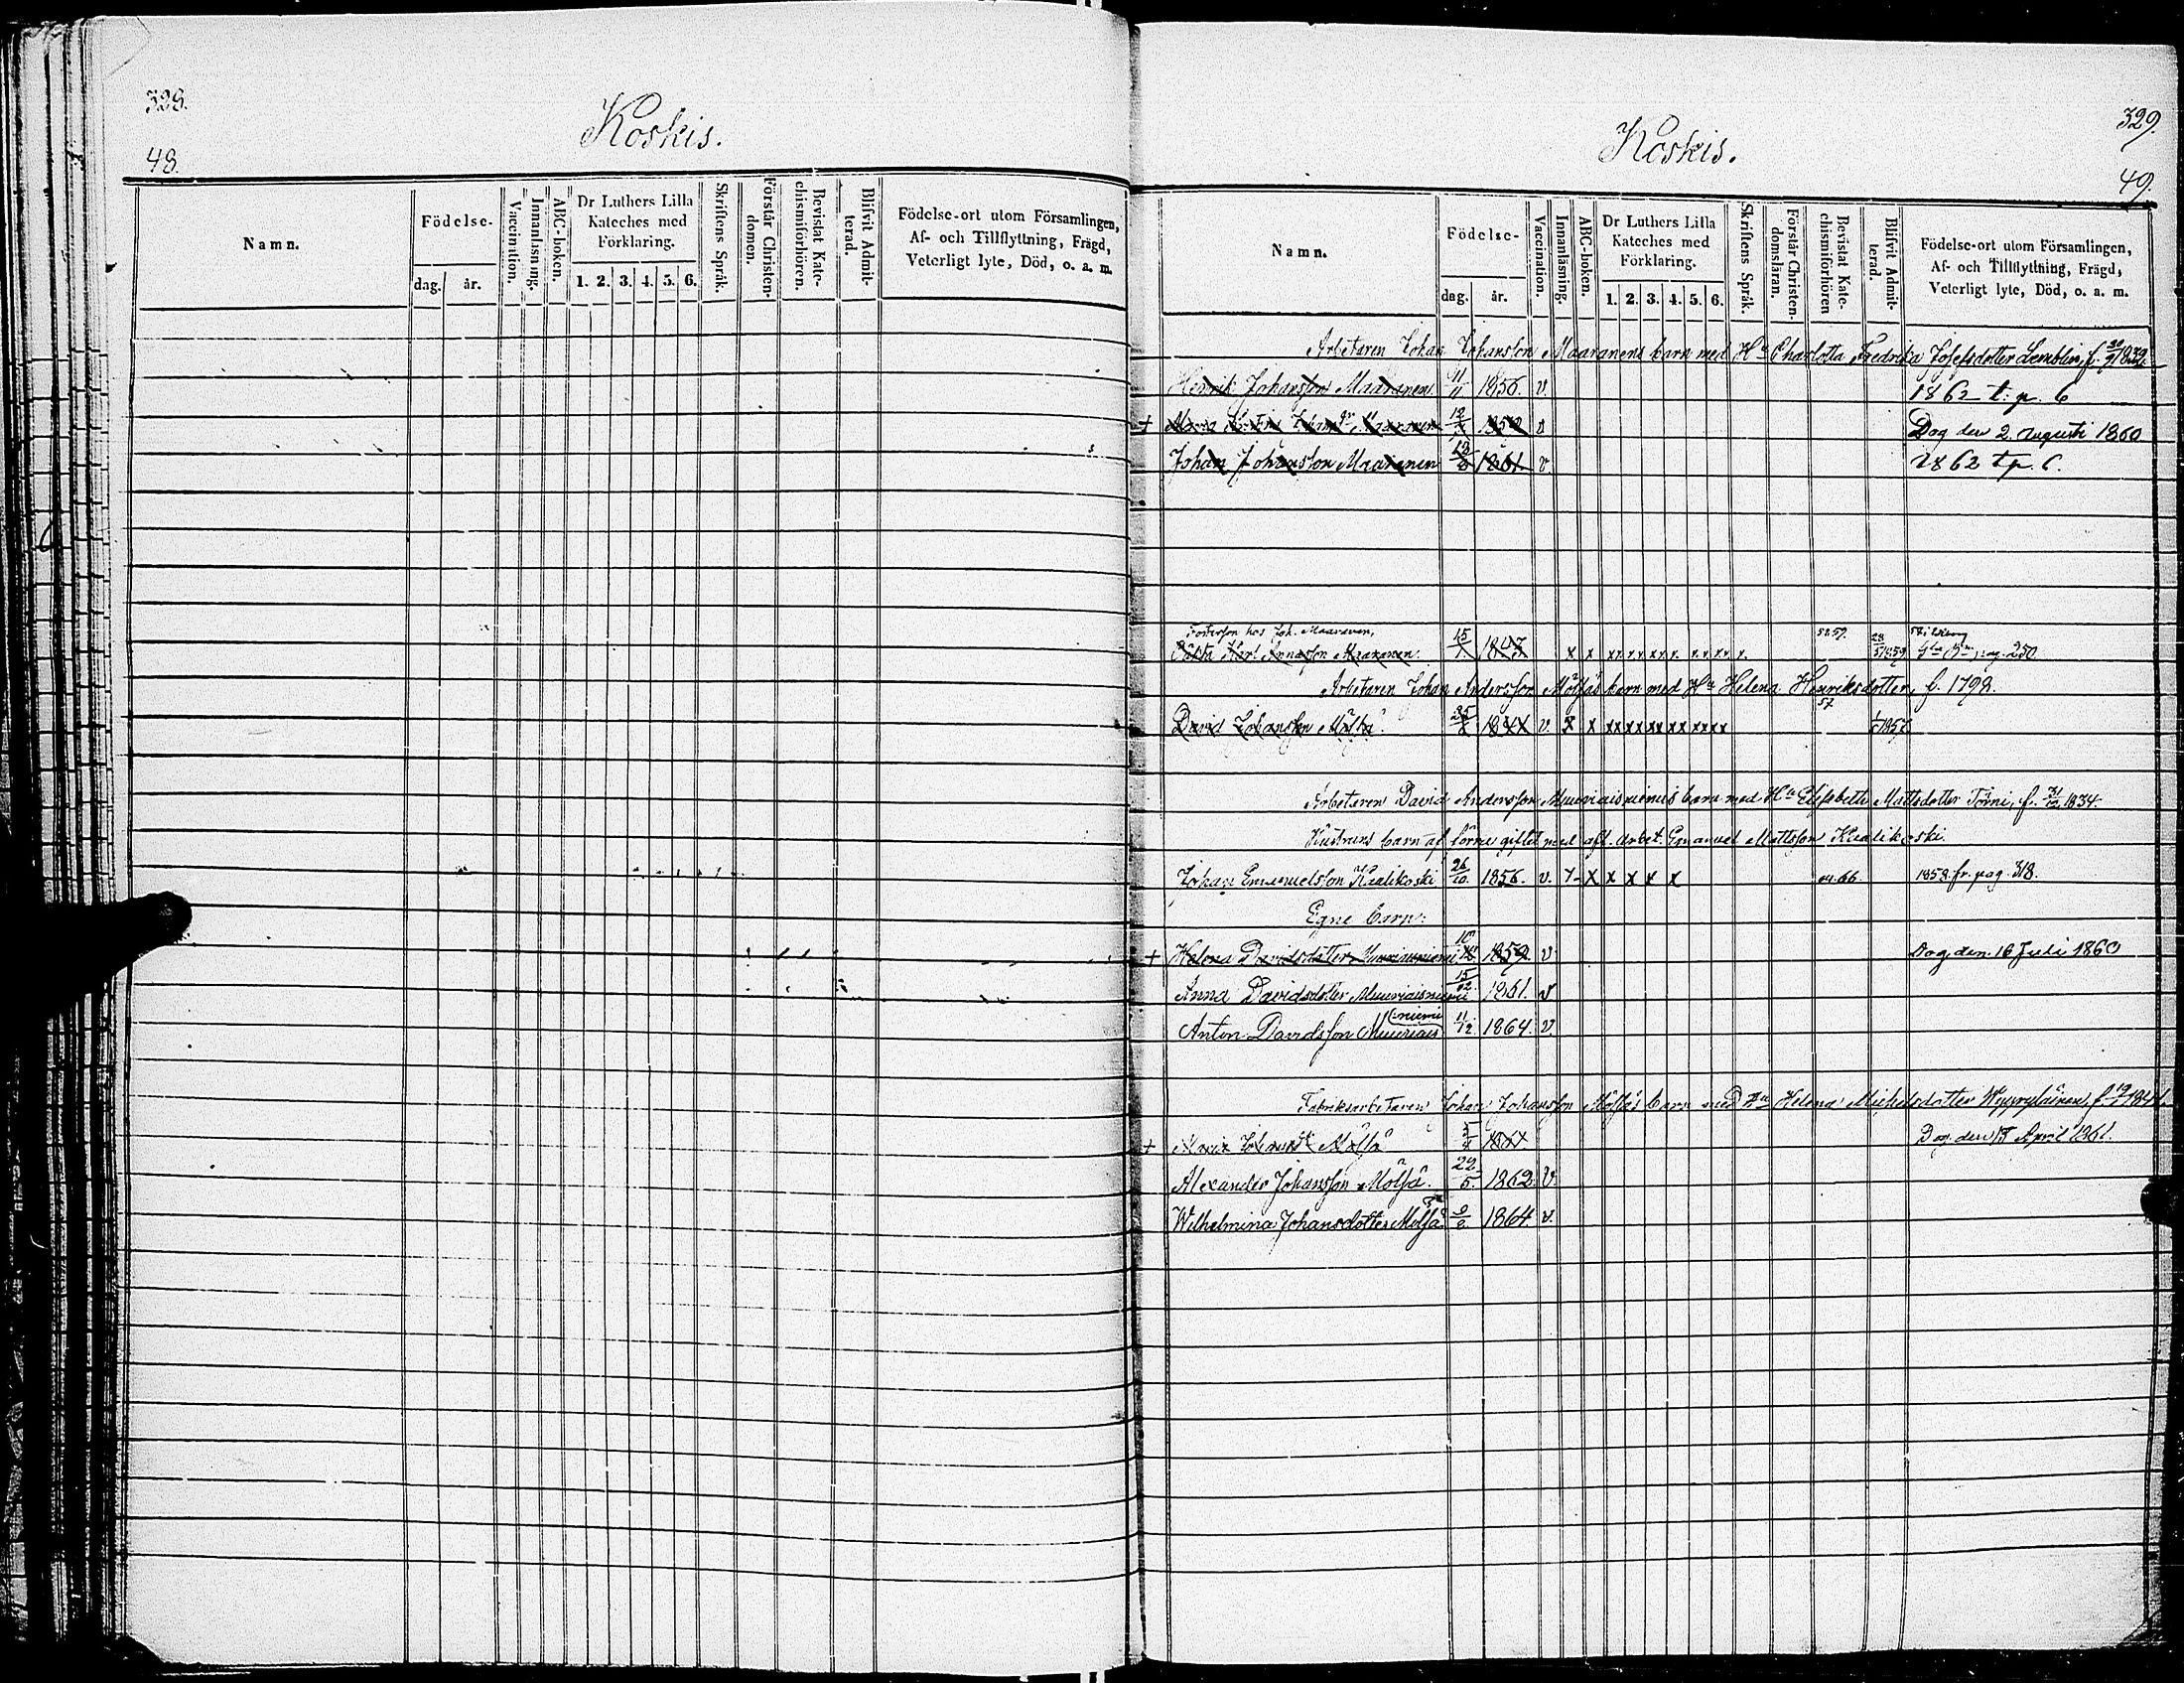 328.
Koskis.
48.
Namn.
Födelse-
dag. år.
Vaccination.
Innanläsning.
ABC-boken.
Dr Luthers Lilla
Kateches med
Förklaring.
1. 2. 3. 4. 5. 6.
Skriftens Språk.
Förstår Christen-
domen.
Bevistat Kate-
chismiförhören.
Blifvit Admit-
terad.
Födelse-ort utom Församlingen,
Af- och Tillflyttning, Frägd,
Veterligt lyte, Död, o. a. m.
329.
Koskis.
49.
Namn.
Födelse-
dag. år.
Vaccination.
Innanläsning.
ABC-boken.
Dr Luthers Lilla
Kateches med
Förklaring.
1. 2. 3. 4. 5. 6.
Skriftens Språk.
Förstår Christen-
domsläran.
Bevistat Kate-
chismiförhören
Blifvit Admit-
terad.
Födelse-ort utom Församlingen,
Af- och Tillflyttning, Frägd,
Veterligt lyte, Död, o. a. m.
Arbetaren Johan Johansson Maaranens barn med Hu Charlotta Fredrika Josefsdotter Lemblin, f.
Henrik Johansson Maaranen 11/11 1856. v. 1862 t. p. 6
+ Maranen v Dog den 2. augusti 1860
Johan Johansson Maaranen 1861 v 1862 t p. 6.
Fosterson hos Joh. Maaranen,
Karl Maaranen 15/1 1847 x x xx xx xx xx xx x. pag. 250
Arbetaren Johan Andersson Mölsäs barn med Hu Helena Henriksdotter, f. 1798.
57
David Johansson Mölsä v. x x xx xx xx xx xxxx 1857
Arbetaren David Andersson Muuriaisniemis barn med Hu Elisabeth Mattsdotter Törni, f. 31/12 1834.
Hustruns barn af förra giftet med afl. arbet. Emanuel Mattsson Kualikoski.
Johan Emanuelsson Kualikoski 26/10. 1856. v. x x x x x x 66 1858 fr. pag. 318.
Egne barn:
+ Helena Davidsdotter Muuriaisniemi 1859 v Dog den 16 Juli 1860
Anna Davidsdotter Muuriaisniemi 15/12 1861. v
Anton Davidsson Muuriais(niemi 11/12 1864. v.
Fabriksarbetaren Johan Johansson Mölsäs barn med Hu Helena Michelsdotter
+ Maria Mölsä Dog den April 1861.
Alexander Johansson Mölsä. 22/5. 1862. v.
Wilhelmina Johansdotter Mölsä 1864. v.